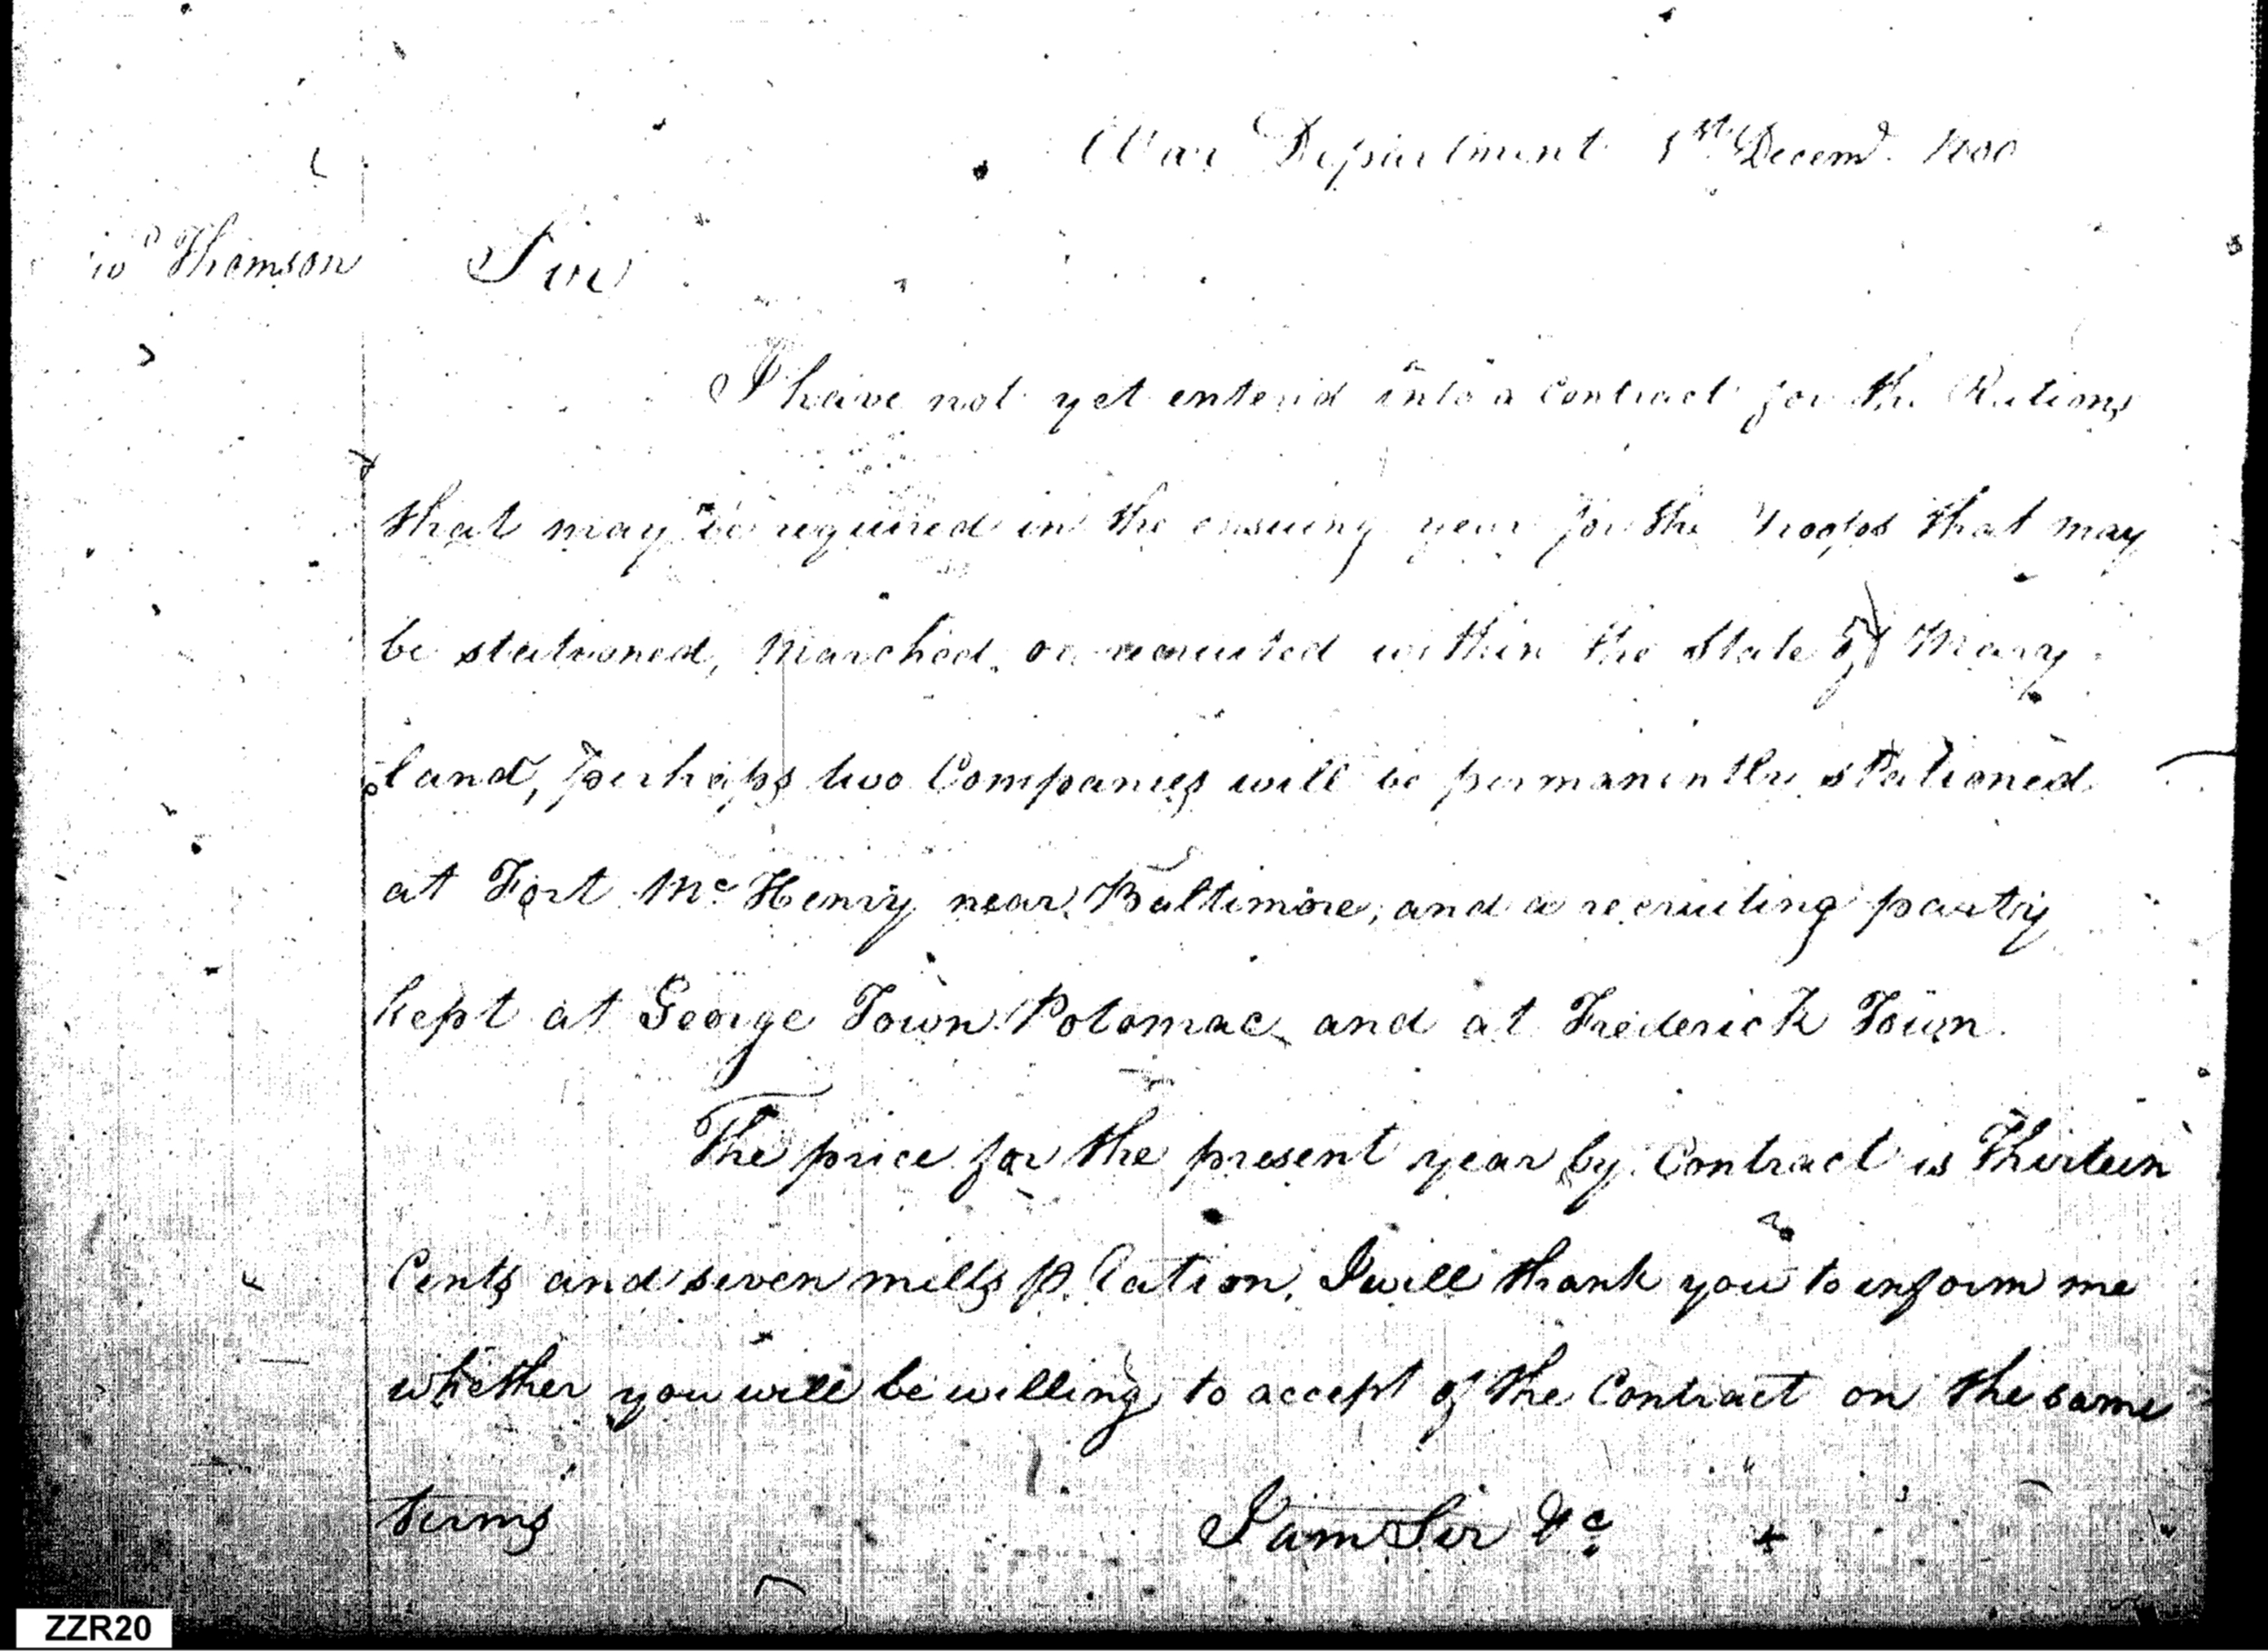 War Department 1st Decemr. 1800
Thomson
Sir
I have not yet entered into a Contract for the Rations
that may be required in the ensuing year for the Troops that may
be stationed, marched, or recruited within the State of Mary
land, perhaps two Companies will be permanently stationed
at Fort McHenry near Baltimore, and a recruiting party
kept at George Town Potomac and at Frederick Town.
The price for the present year by Contract is Thirteen
Cents and seven mills p. Ration, I will thank you to inform me
whether you will be willing to accept of the Contract on the same
terms
I am Sir &c
ZZR20